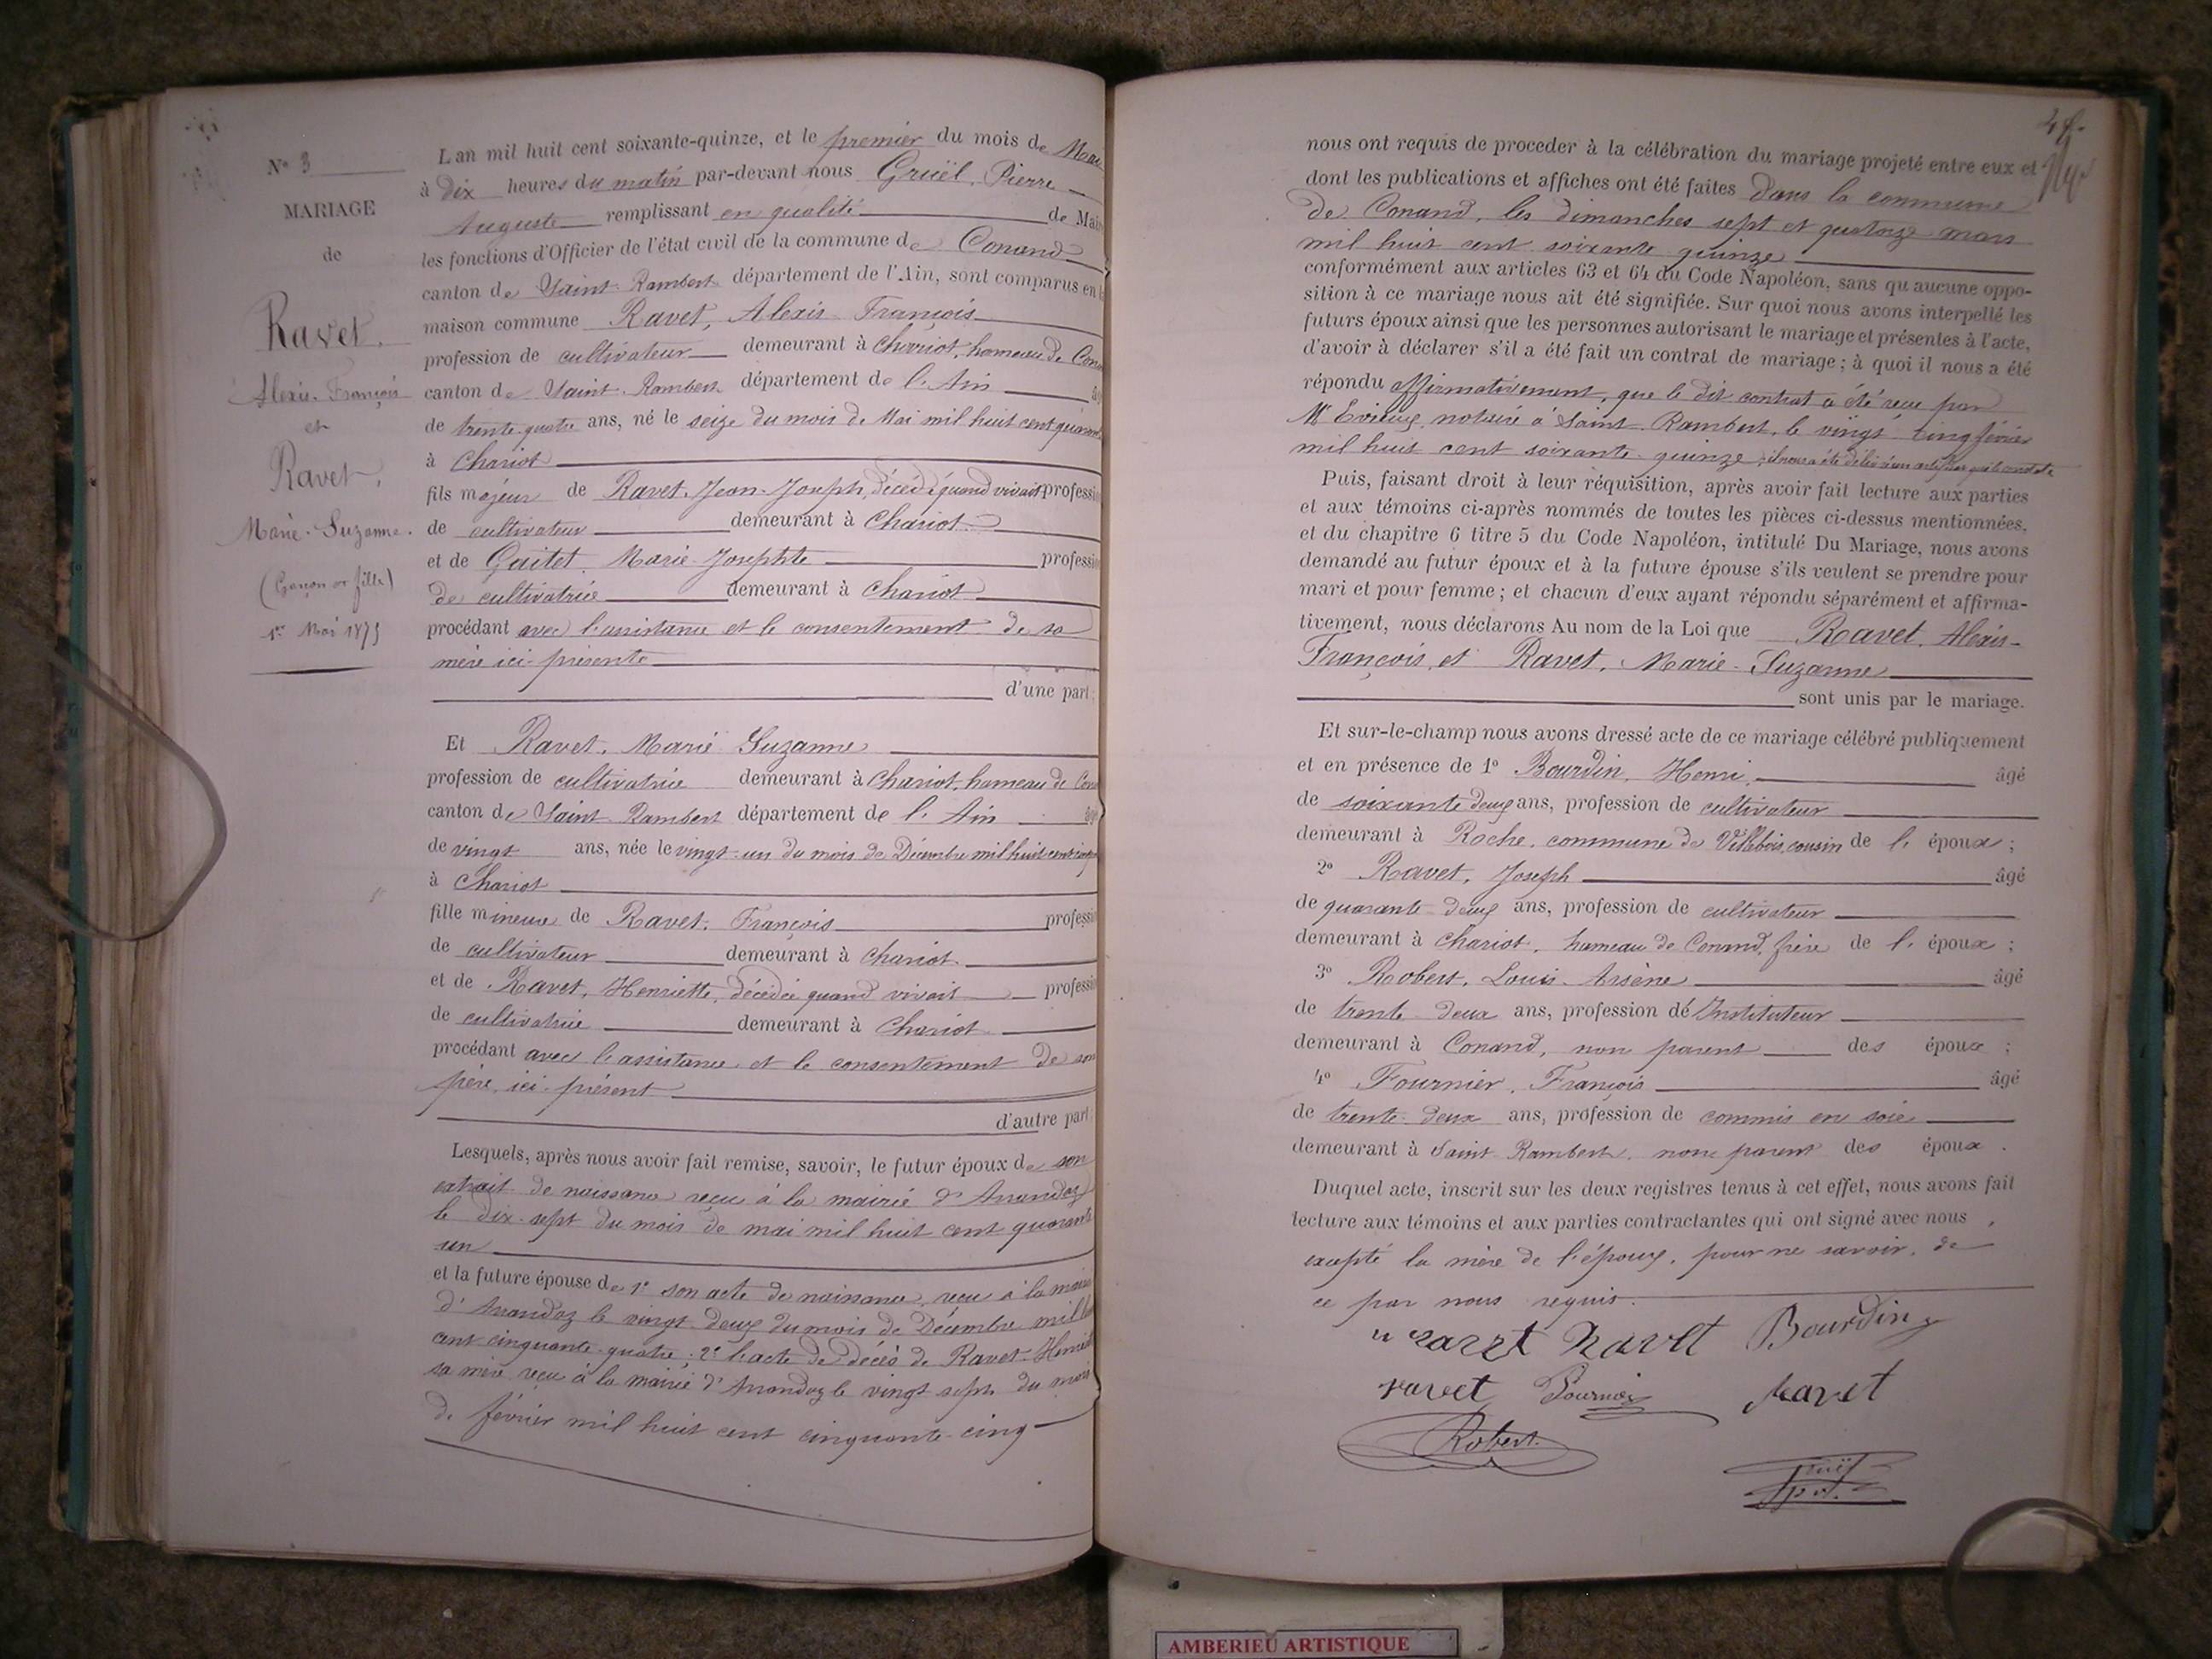 N° 3
MARIAGE
de
Ravet.
Alexis-François
et
Ravet,
Marie-Suzanne.
(Garçon et fille)
1er Mai 1875
L'an mil huit cent soixante-quinze, et le premier du mois de Mai
à dix heures du matin par-devant nous Gruël, Pierre
Auguste remplissant en qualité de Maire
les fonctions d'Officier de l'état civil de la commune de Conand
canton de Saint-Rambert département de l'Ain, sont comparus en la
maison commune Ravet, Alexis-François
profession de cultivateur demeurant à Chariot, hameau de Conand
canton de Saint-Rambert département de l'Ain
de trente-quatre ans, né le seize du mois de Mai mil huit cent quarante
à Chariot
fils majeur de Ravet, Jean-Joseph, décédé quand vivait profession
de cultivateur demeurant à Chariot
et de Guitet, Marie-Josephte profession
de cultivatrice demeurant à Chariot
procédant avec l'assistance et le consentement de sa
mère ici-présente
d'une part;
Et Ravet, Marie-Suzanne
profession de cultivatrice demeurant à Chariot, hameau de Conand
canton de Saint-Rambert département de l'Ain âgée
de vingt ans, née le vingt-un du mois de Décembre mil huit cent cinquante
à Chariot
fille mineure de Ravet, François profession
de cultivateur demeurant à Chariot
et de Ravet, Henriette, décédée quand vivait profession
de cultivatrice demeurant à Chariot
procédant avec l'assistance et le consentement de son
père, ici-présent
d'autre part.
Lesquels, après nous avoir fait remise, savoir, le futur époux de son
extrait de naissance reçu à la mairie d'Arandaz
le dix-sept du mois de mai mil huit cent quarante
un
et la future épouse de 1° son acte de naissance, reçu à la mairie
d'Arandaz le vingt-deux du mois de Décembre mil huit
cent cinquante-quatre; 2° l'acte de décès de Ravet Henriette
sa mère reçu à la mairie d'Arandaz le vingt sept du mois
de février mil huit cent cinquante-cinq
nous ont requis de proceder à la célébration du mariage projeté entre eux et
dont les publications et affiches ont été faites dans la commune
de Conand, les dimanches sept et quatorze mars
mil huit cent soixante quinze
conformément aux articles 63 et 64 du Code Napoléon, sans qu'aucune oppo-
sition à ce mariage nous ait été signifiée. Sur quoi nous avons interpellé les
futurs époux ainsi que les personnes autorisant le mariage et présentes à l'acte,
d'avoir à déclarer s'il a été fait un contrat de mariage; à quoi il nous a été
répondu affirmativement, que le dit contrat a été reçu par
Me Evieux, notaire à Saint-Rambert, le vingt-cinq février
mil huit cent soixante-quinze; il nous a été délivré un certificat qui le constate
Puis, faisant droit à leur réquisition, après avoir fait lecture aux parties
et aux témoins ci-après nommés de toutes les pièces ci-dessus mentionnées,
et du chapitre 6 titre 5 du Code Napoléon, intitulé Du Mariage, nous avons
demandé au futur époux et à la future épouse s'ils veulent se prendre pour
mari et pour femme; et chacun d'eux ayant répondu séparément et affirma-
tivement, nous déclarons Au nom de la Loi que Ravet, Alexis-
François, et Ravet, Marie-Suzanne
sont unis par le mariage.
Et sur-le-champ nous avons dressé acte de ce mariage célébré publiquement
et en présence de 1° Bourdin, Henri, âgé
de soixante deux ans, profession de cultivateur
demeurant à Roche, commune de Villebois, cousin de l'époux;
2° Ravet, Joseph âgé
de quarante-deux ans, profession de cultivateur
demeurant à Chariot, hameau de Conand, frère de l'époux;
3° Robert, Louis-Arsène âgé
de trente-deux ans, profession de Instituteur
demeurant à Conand, non parent des époux;
4° Fournier, François âgé
de trente-deux ans, profession de commis en soie
demeurant à Saint-Rambert, non parent des époux.
Duquel acte, inscrit sur les deux registres tenus à cet effet, nous avons fait
lecture aux témoins et aux parties contractantes qui ont signé avec nous,
excepté la mère de l'époux, pour ne savoir, de
ce par nous requis.
ravet Ravet Bourdin
ravet Fournier Ravet
Robert
Gruël
AMBERIEU ARTISTIQUE